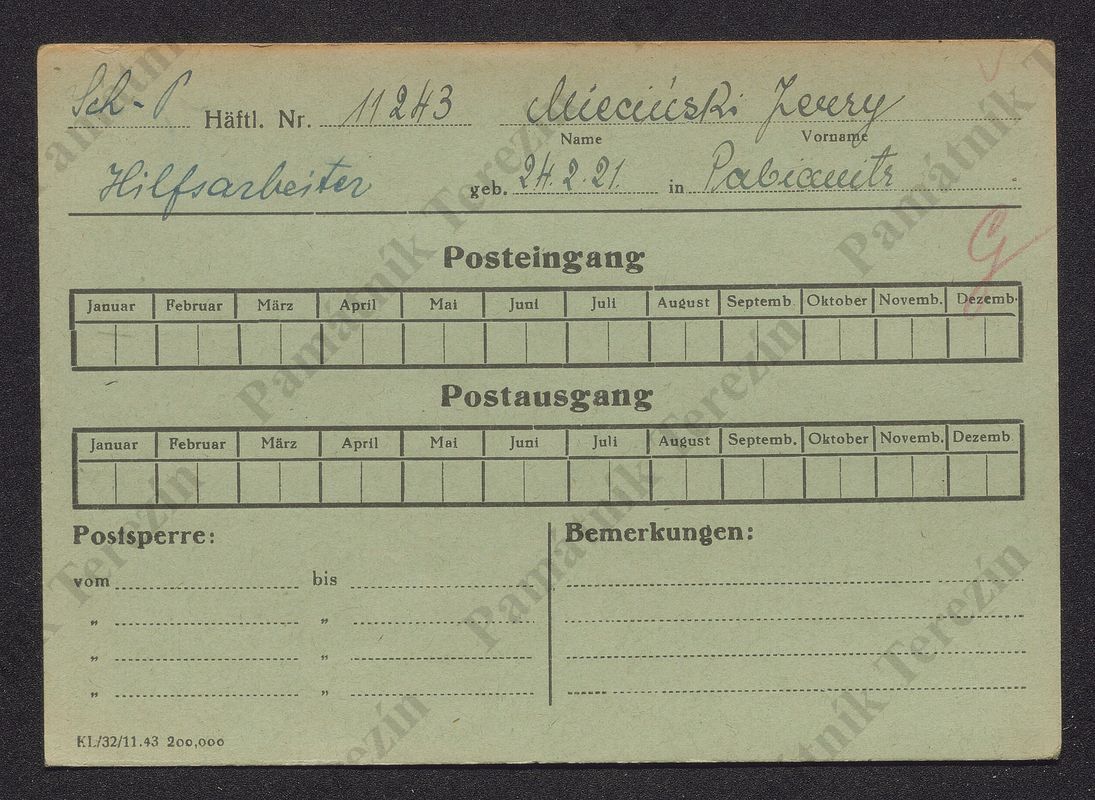 Sch-P Häftl. Nr. 11243 Mieciński Jerzy
Name Vorname
Hilfsarbeiter geb. 24.2.21. in Pabianitz
G
Posteingang
Januar Februar März April Mai Juni Juli August Septemb. Oktober Novemb. Dezemb.
Postausgang
Januar Februar März April Mai Juni Juli August Septemb. Oktober Novemb. Dezemb.
Postsperre: Bemerkungen:
vom bis
„ „
„ „
„ „
KL/32/11.43 200,000
Památník Terezín